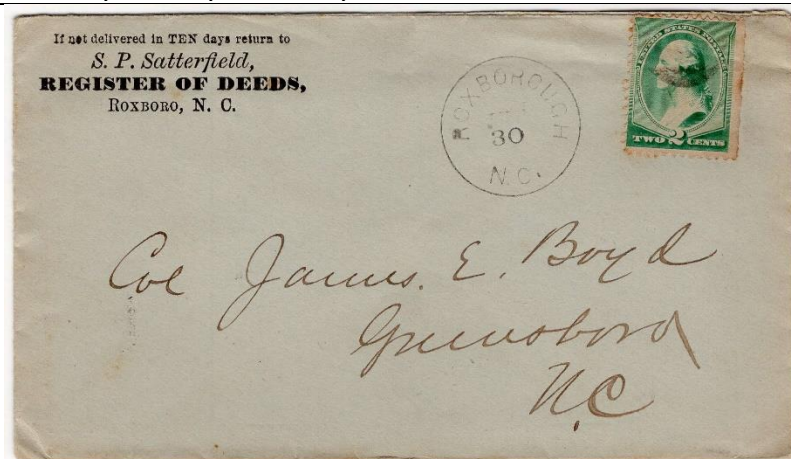 If not delivered in TEN days return to
S. P. Satterfield,
REGISTER OF DEEDS,
ROXBORO, N. C.
ROXBOROUGH
30
N.C.
UNITED STATES POSTAGE
TWO 2 CENTS
Col James. E. Boyd
Greensboro
N.C